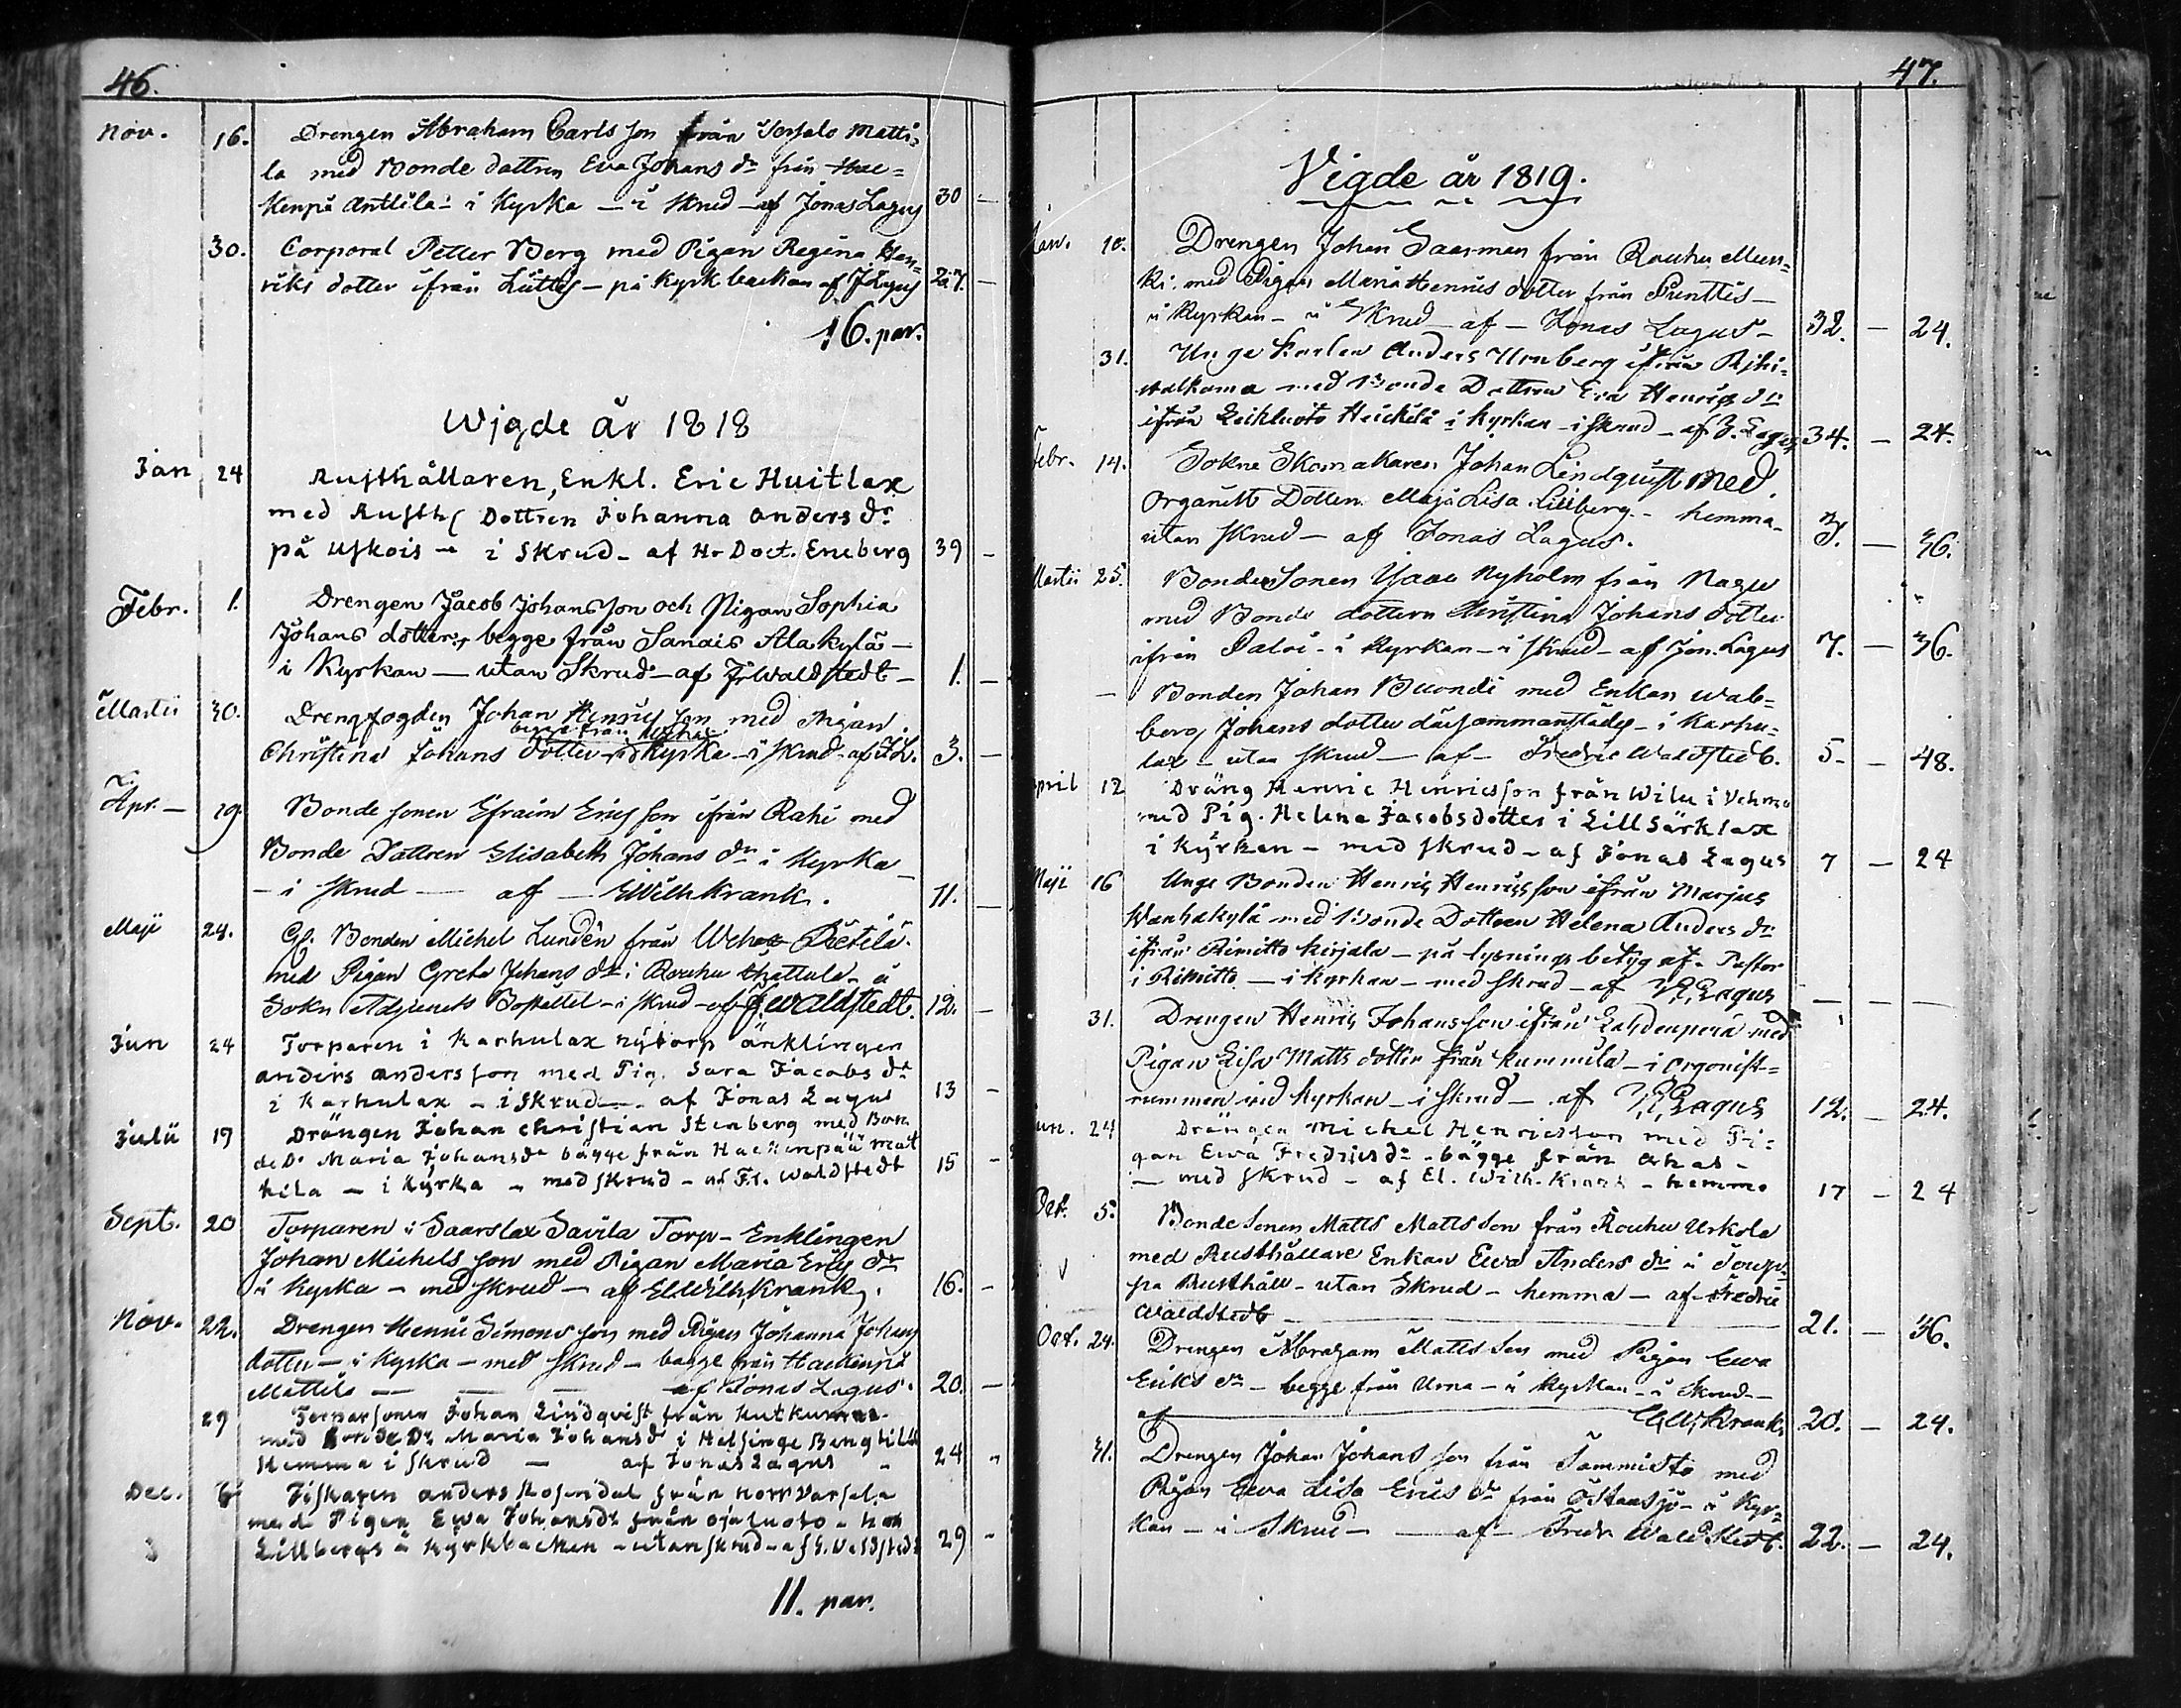 46.
Nov. 16. Drengen Abraham Carls son från Sersalo Matti=
la med Bonde dottren Eva Johans dr från Hac=
kenpä Anttila - i Kyrka - i Skrud - af Jonas Lagus 30 -
30. Corporal Petter Berg med Pigan Regina Hen=
riks dotter ifrån Lüttis - på Kyrk backan af J Lagus 27. -
16. par.
Wigde år 1818
Jan 24 Rusthållaren, Enkl. Eric Huitlax
med Rusth( Dottren Johanna Anders dr
på Uskois - i Skrud - af Hr Doct. Eneberg 39 -
Febr. 1. Drengen Jacob Johansson och Pigan Sophia
Johans dotter, begge från Sanais Alakylä -
i Kyrkan - utan Skrud - af Fr Waldstedt - 1. -
Martii 30. Drengfogden Johan Henrics son med Pigan
begge från
Christina Johans dotter - Kyrka - i Skrud - af J.L. 3. -
Apr. - 19. Bonde sonen Efraim Erics son ifrån Rahi med
Bonde Dottren Elisabeth Johans dr i Kyrka -
- i Skrud - af - E Wilh Krank. 11. -
Maji 24. Gl. Bonden Michel Lundèn från Pietilä
med Pigan Greta Johans dr i Rouhu - å
Sokn Adjuncts Bostället - i Skrud - af F. Waldstedt. 12. -
Jun 24 Torparen i Karhulax nytorp änklingen
Anders Andersson med Pig. Sara Jacobs dr
i Karhulax - i Skrud - af Jonas Lagus 13 -
Julii 19 Drängen Johan Christian Stenberg med Bon
de Dr Maria Johansdr bägge från Hackenpää Mat
hila - i Kyrka - med skrud - af Fr. Waldstedt 15 -
Sept. 20 Torparen i Saarslax Savila Torp - Enklingen
Johan Michels son med Pigan Maria Erics dr
i Kyrka - med skrud - af El Wilh. Krank. 16. -
Nov. 22. Drengen Henric Simons son med Pigan Johanna Johans
dotter - i Kyrka - med skrud - begge från Hackenpä
Mattila - - - af Jonas Lagus. 20. -
29 Torparsonen Johan Lindqvist från
med Bonde Dr Maria Johansdr i Helsinge
Hemma i skrud - af Jonas Lagus - 24 -
Dec. 6 Fiskaren Anders Rosendal från Norrvarsala
med Pigan Ewa Johansdr från Ojaluoto - hos
Lillbergs å Kyrkbacken - utan skrud - af F. Waldstedt 29 -
11. par.
47.
Vigde år 1819.
Jan. 10. Drengen Johan Saarman från Rouhu Mun=
ki med Pigan Maria Henrics dotter från Punttis -
i Kyrkan - i Skrud - af - Jonas Lagus - 32. - 24.
31. Unge Karlen Anders Urnberg ifrån Rihi=
walkama med Bonde Dottren Eva Henrics dr
ifrån Leikluoto Heickilä i Kyrkan - i Skrud - af J. Lagus 34. - 24.
Febr. 14. Sokne Skomakaren Johan Lindquist med
Organist Dotten Maja Lisa Lillberg - hemma -
utan skrud - af Jonas Lagus. 3. - 36.
Martii 25. Bonde Sonen Isaac Nyholm från Nagu
med Bonde dottern Christina Johans dotter
ifrån Paloi - i Kyrkan - i skrud - af Jon. Lagus 7. - 36.
- Bonden Johan Buondi med Enkan Wal=
berg Johans dotter därsammanstädes - i Karhu=
lax - utan skrud - af - Fredric Waldstedt. 5 - - 48.
April 12 Dräng Henric Henricsson från Wilu i Vehmo
med Pig. Helena Jacobsdotter i Lill Särklax
i Kyrkan - med skrud - af Jonas Lagus 7 - 24
Maji 16 Unge Bonden Henric Henricsson ifrån Marjus
Wanhakylä med Bonde Dottren Helena Anders dr
ifrån Rimitto Kirjala - på lysnings betyg af Pastor
i Rimitto - i Kyrkan - med Skrud - af Lagus - - -
31. Drengen Henric Johansson ifrån Lahdenperä med
Pigan Lisa Matts dotter från Kummila - i Organist=
rummen vid Kyrkan - i skrud - af Lagus 12. - 24.
Jun. 24 Drängen Michel Henricsson med Pi=
gan Ewa Fredricsdr - bägge från Ahas -
- med skrud - af El. Wilh. Krank - hemma 17 - 24
Oct. 5. Bonde Sonen Matts Matts son från Rouhu Urkola
med Rusthållare Enkan Ewa Anders dr i
pa Rusthåll - utan Skrud - hemma - af Fredric
Waldstedt - 21. - 36.
Oct. 24. Drengen Abraham Matts Son med Pigan Ewa
Eriks dr - begge från Urna - i Kyrkan - i Skrud -
af El W, Krank, 20. - 24.
31. Drengen Johan Johans son från Sammisto med
Pigan Ewa Lisa Erics dr från Östansjö - i Kyr=
kan - i Skrud - - af - Fredr Waldstedt. 22. - 24.